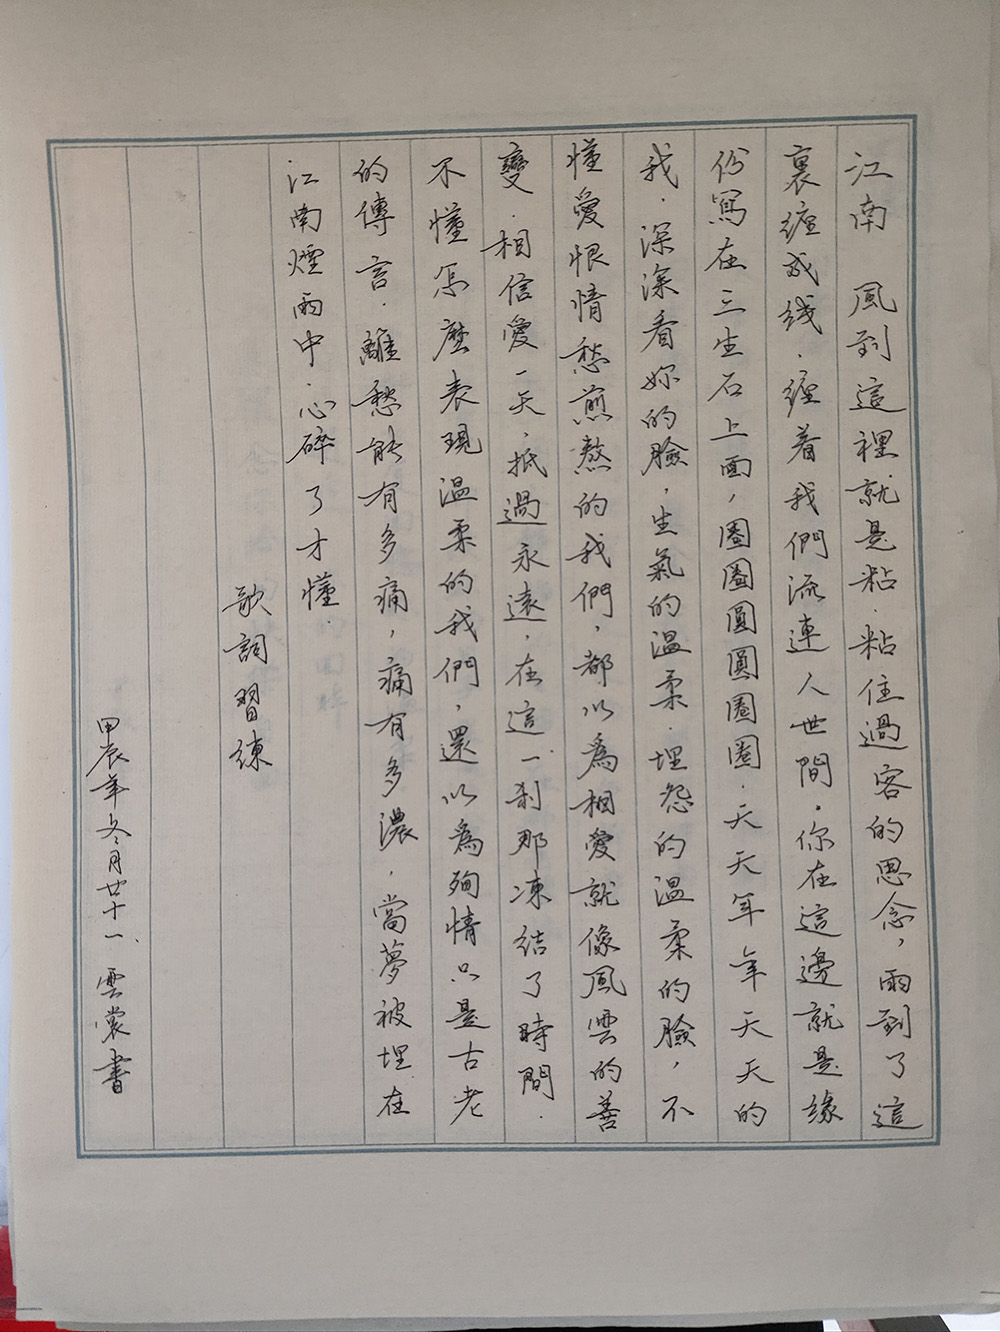 江南 風到這裡就是粘.粘住過客的思念，雨到了這
裏纏成线.纏着我們流連人世間.你在這邊就是緣
份寫在三生石上面，圈圈圓圓圈圈.天天年年天天的
我.深深看妳的臉，生氣的温柔.埋怨的温柔的臉，不
懂愛恨情愁煎熬的我們，都以為相愛就像風雲的善
變.相信愛一天.抵過永遠.在這一刹那凍结了時間.
不懂怎麽表現温柔的我們，還以為殉情只是古老
的傳言.離愁能有多痛，痛有多濃.當夢被埋在
江南煙雨中.心碎了才懂.
歌詞習練
甲辰年冬月廿十一.雲裳書